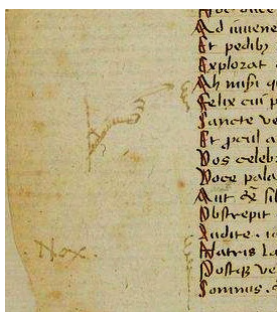 Ad iuuene
Et pedibꝫ
Explorat
Ah misi q
Felix cui p
Sancte ve
Et pcul a
Vos celebr
Voce pala
Aut & sib
Obstrepit
Nox.
Ludite ia
Matris la
Postqꝫ ve
Somnus